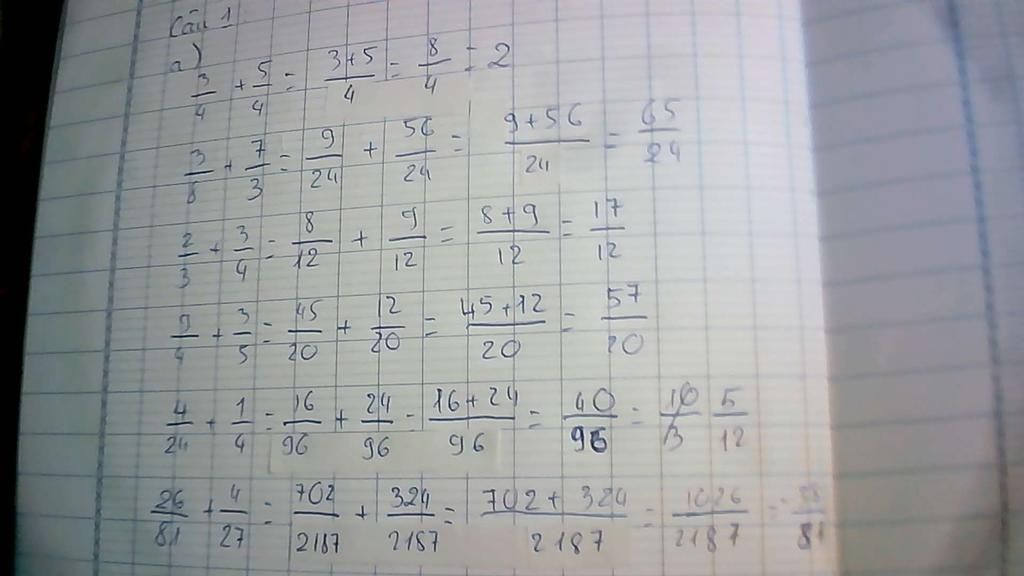 Câu 1
a)
3/4 + 5/4 = 3+5/4 = 8/4 = 2
3/8 + 7/3 = 9/24 + 56/24 = 9+56/24 = 65/24
2/3 + 3/4 = 8/12 + 9/12 = 8+9/12 = 17/12
9/4 + 3/5 = 45/20 + 12/20 = 45+12/20 = 57/20
4/24 + 1/4 = 16/96 + 24/96 = 16+24/96 = 40/96 = 5/12
26/81 + 4/27 = 702/2187 + 324/2187 = 702+324/2187 = 1026/2187 = /81